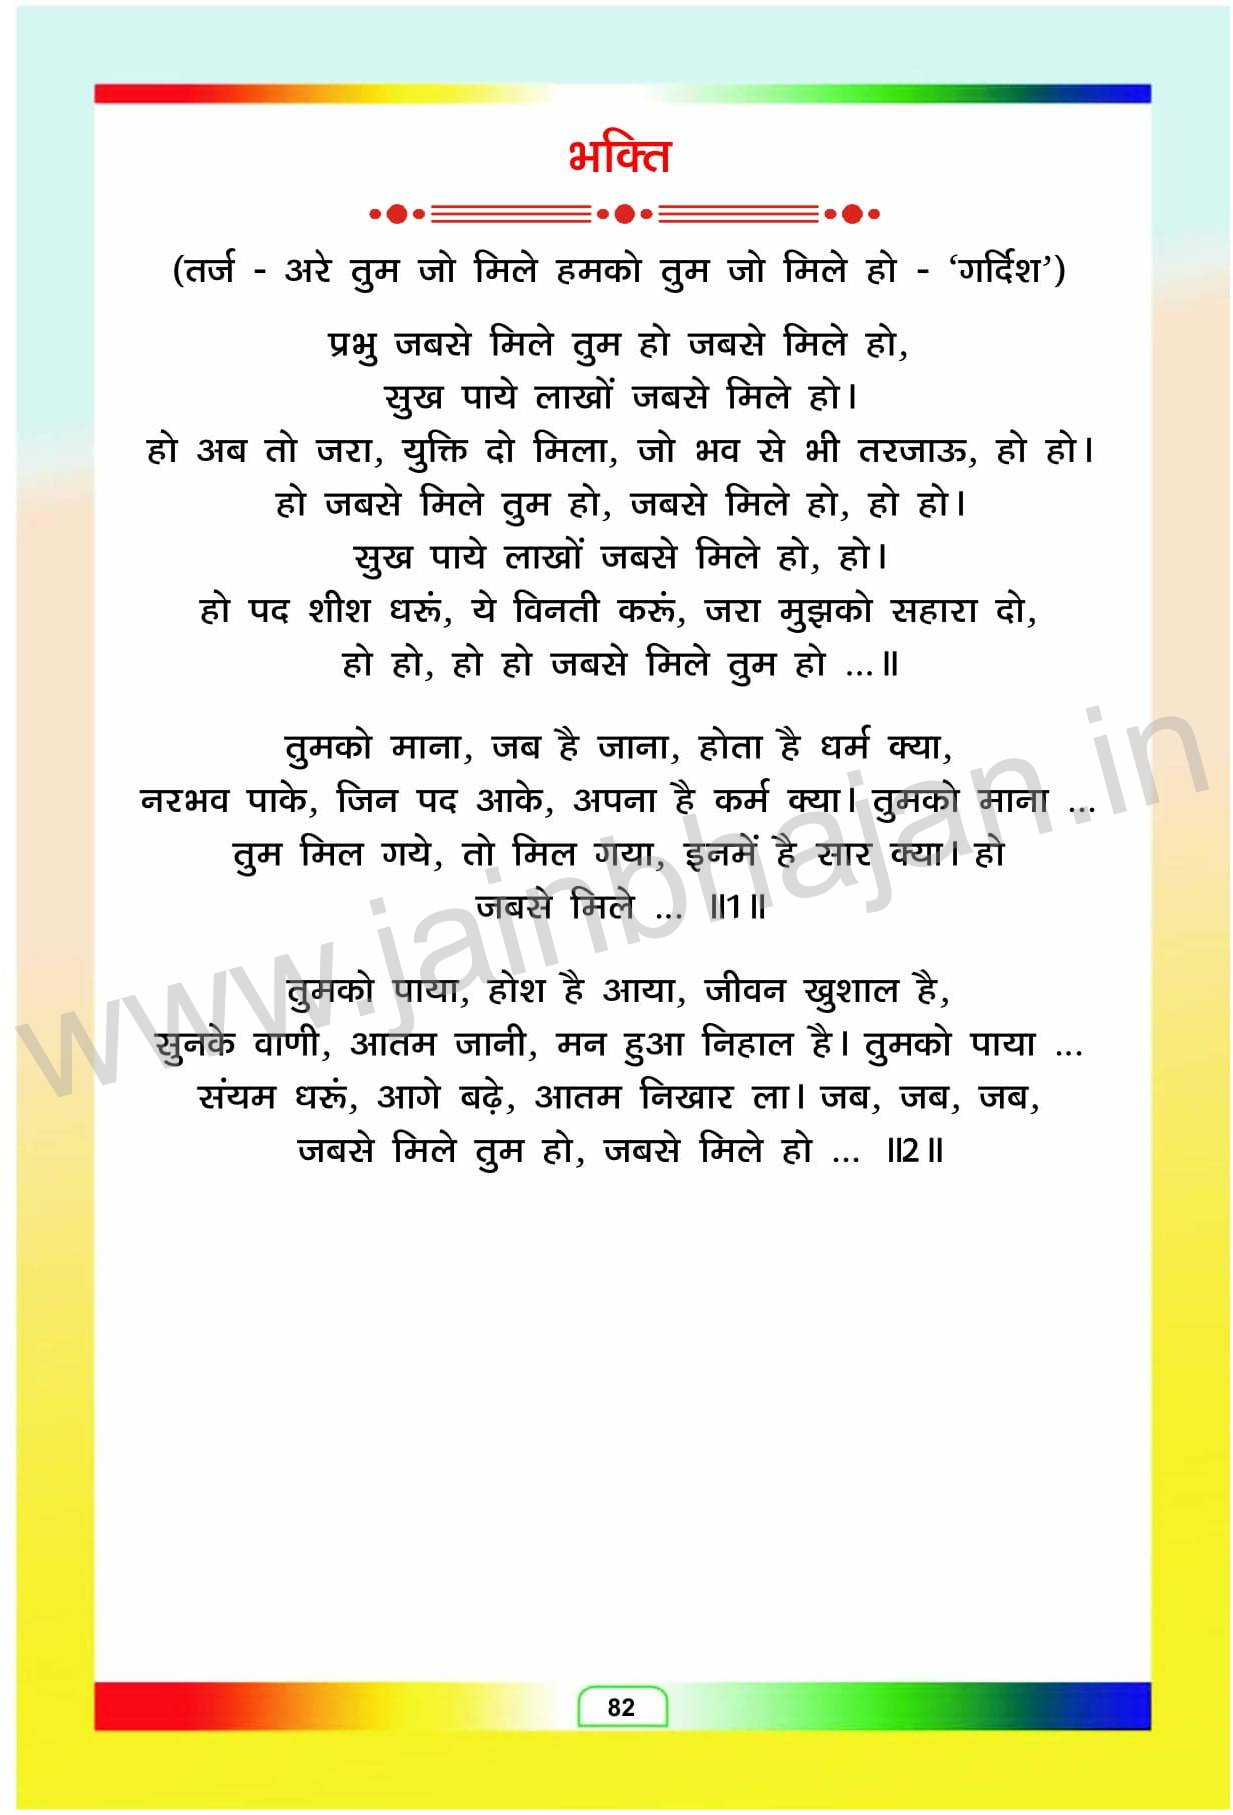 भक्ति
(तर्ज - अरे तुम जो मिले हमको तुम जो मिले हो - ‘गर्दिश’)
प्रभु जबसे मिले तुम हो जबसे मिले हो,
सुख पाये लाखों जबसे मिले हो।
हो अब तो जरा, युक्ति दो मिला, जो भव से भी तरजाऊ, हो हो।
हो जबसे मिले तुम हो, जबसे मिले हो, हो हो।
सुख पाये लाखों जबसे मिले हो, हो।
हो पद शीश धरूं, ये विनती करूं, जरा मुझको सहारा दो,
हो हो, हो हो जबसे मिले तुम हो ...॥
तुमको माना, जब है जाना, होता है धर्म क्या,
नरभव पाके, जिन पद आके, अपना है कर्म क्या। तुमको माना ...
तुम मिल गये, तो मिल गया, इनमें है सार क्या। हो
जबसे मिले ... ॥1॥
तुमको पाया, होश है आया, जीवन खुशाल है,
सुनके वाणी, आतम जानी, मन हुआ निहाल है। तुमको पाया ...
संयम धरूं, आगे बढ़े, आतम निखार ला। जब, जब, जब,
जबसे मिले तुम हो, जबसे मिले हो ... ॥2॥
www.jainbhajan.in
82